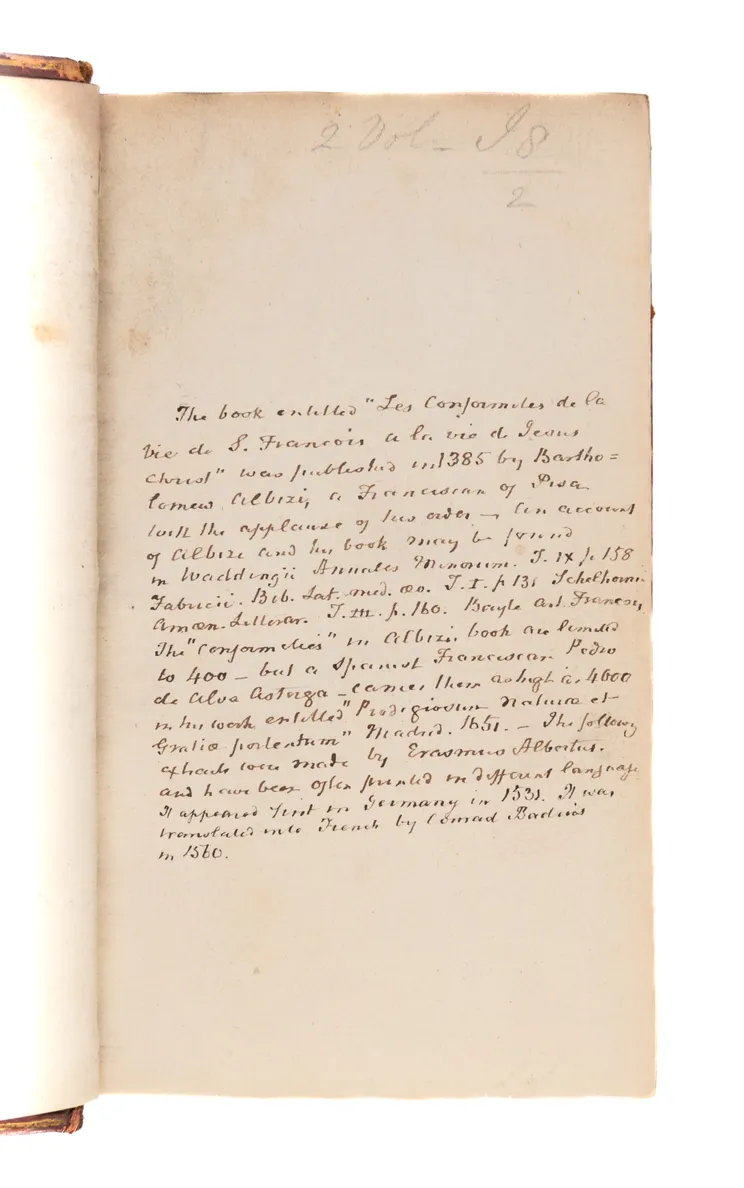 2 Vol - J 8
2
The book entitled "Les Conformites de la
Vie de S. Francois a la vie de Jesus
Christ" was published in 1385 by Bartho=
lomew Albizi, a Franciscan of Pisa
with the applause of his order - An account
of Albizi and his book may be found
in Waddingii Annales Minorum. T. IX p 158
Fabricii. Bib. Lat. med. æv. T. I. p 131 Schelhornii
Amœn. Litterar. T. III. p. 160. Bayle art. Francois
The "Conformities" in Albizi, book are limited
to 400 - but a Spanish Franciscan Pedro
de Alva Astorga - carries them as high as 4000
in his work entitled "Prodigiosum Naturæ et
Gratiæ portentum" Madrid. 1651. - The following
extracts were made by Erasmus Albertus.
and have been often printed in different language
It appeared first in Germany in 1531. It was
translated into French by Conrad Badius
in 1560.